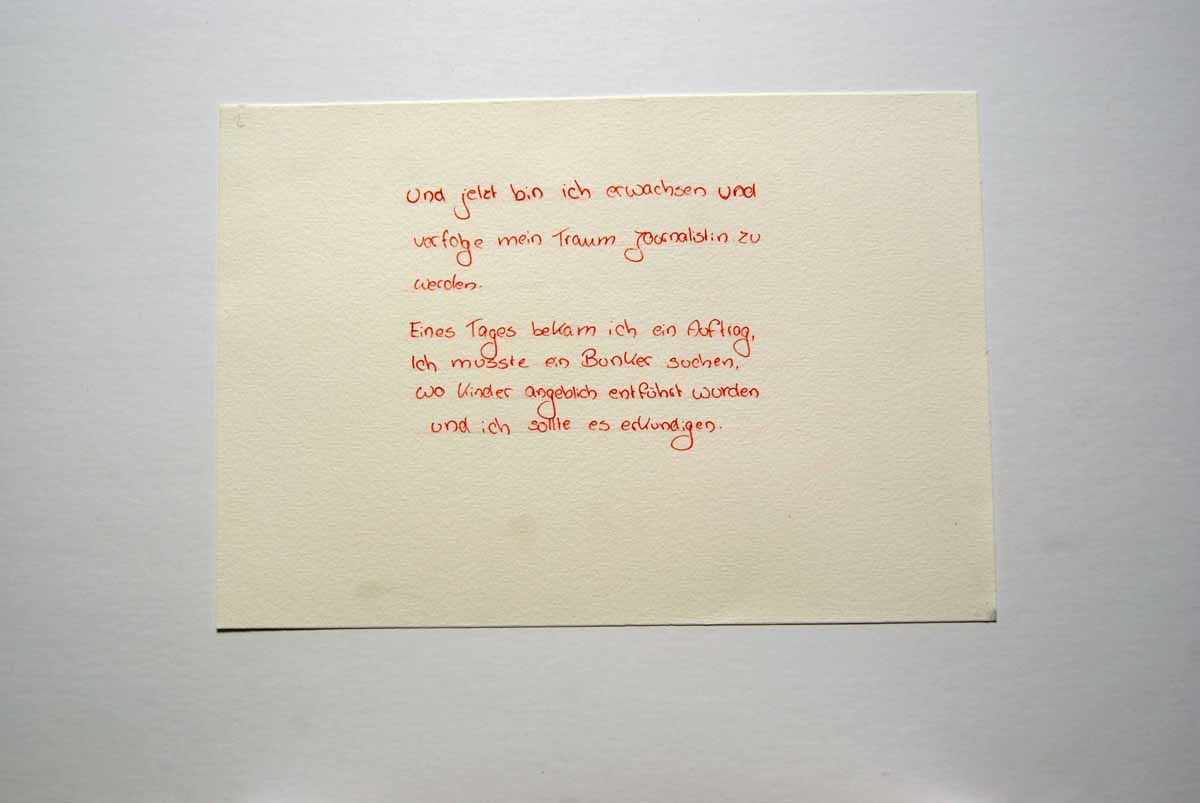 Und jetzt bin ich erwachsen und
verfolge mein Traum Journalistin zu
werden.
Eines Tages bekam ich ein Auftrag,
Ich musste ein Bunker suchen,
wo Kinder angeblich entführt wurden
und ich sollte es erkundigen.